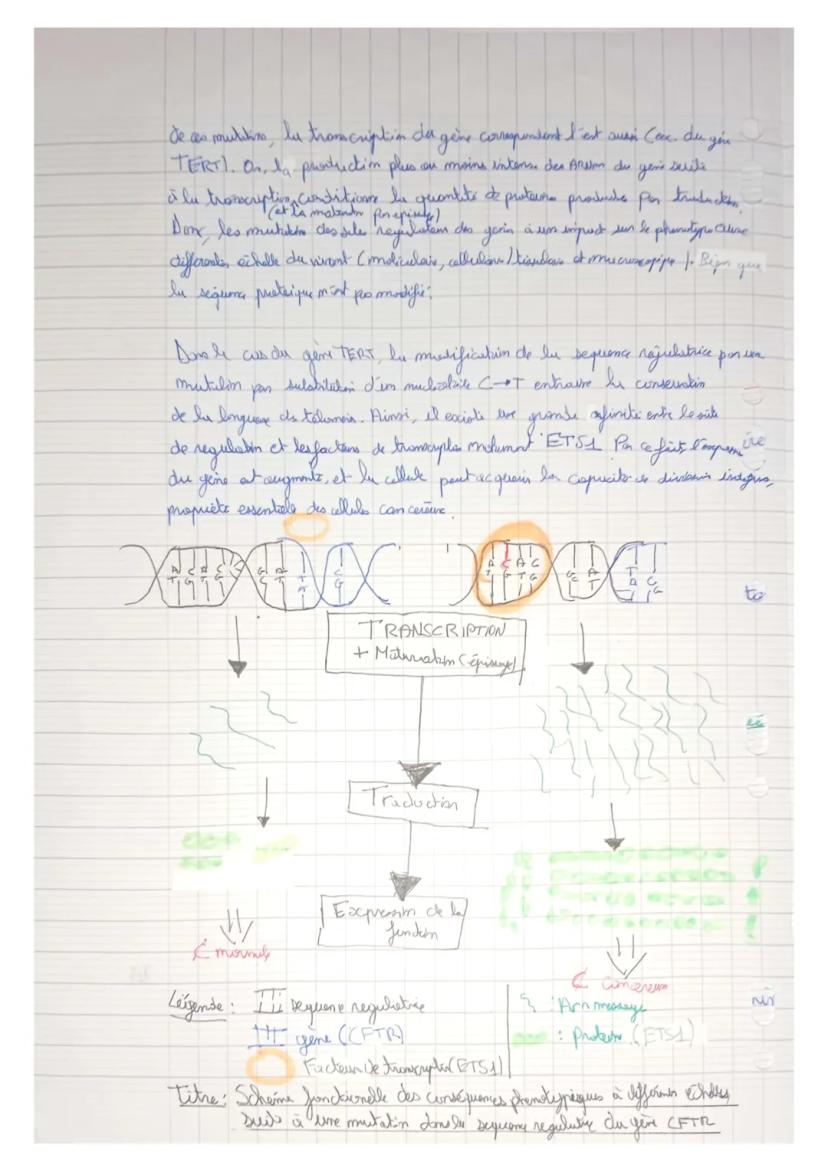 de ces mutations, la transcription du gène correspondant l'est aussi (ex. du gène
TERT). Or, la production plus ou moins intense des ARNm du gène suite
à la transcription conditionne la quantité de protéines produites par traduction.
(et la maturation par épissage)
Donc, les mutations des sites régulateurs des gènes à un impact sur le phénotype
différentes échelle du vivant (moléculaire, cellulaire/tissulaire et macroscopique). Bien que
la séquence protéique n'est pas modifié.
Dans le cas du gène TERT, la modification de la sequence régulatrice par une
mutation par substitution d'un nucléotide C→T entraine la conservation
de la longueur des télomères. Ainsi, il existe une grande affinité entre le site
de regulation et les facteurs de transcription notamment ETS1 Par ce fait, l'expression
du gène est augmenté, et la cellule peut acquérir la capacité de divisions
propriété essentielle des cellules cancéreuse.
A C A C G A T C A C A C G A T C
T G T G C T A G T G T G C T A G
TRANSCRIPTION
+ Maturation (épissage)
Traduction
Expression de la
fonction
₵ normale
₵ cancéreuse
Légende : sequence regulatrice
gène (CFTR)
Facteur de transcription (ETS1)
: Arn messager
: Protéine (ETS1)
Titre : Schéma fonctionelle des conséquences phenotypiques à différents échelles
suite à une mutation dans la sequence regulatrice du gène CFTR